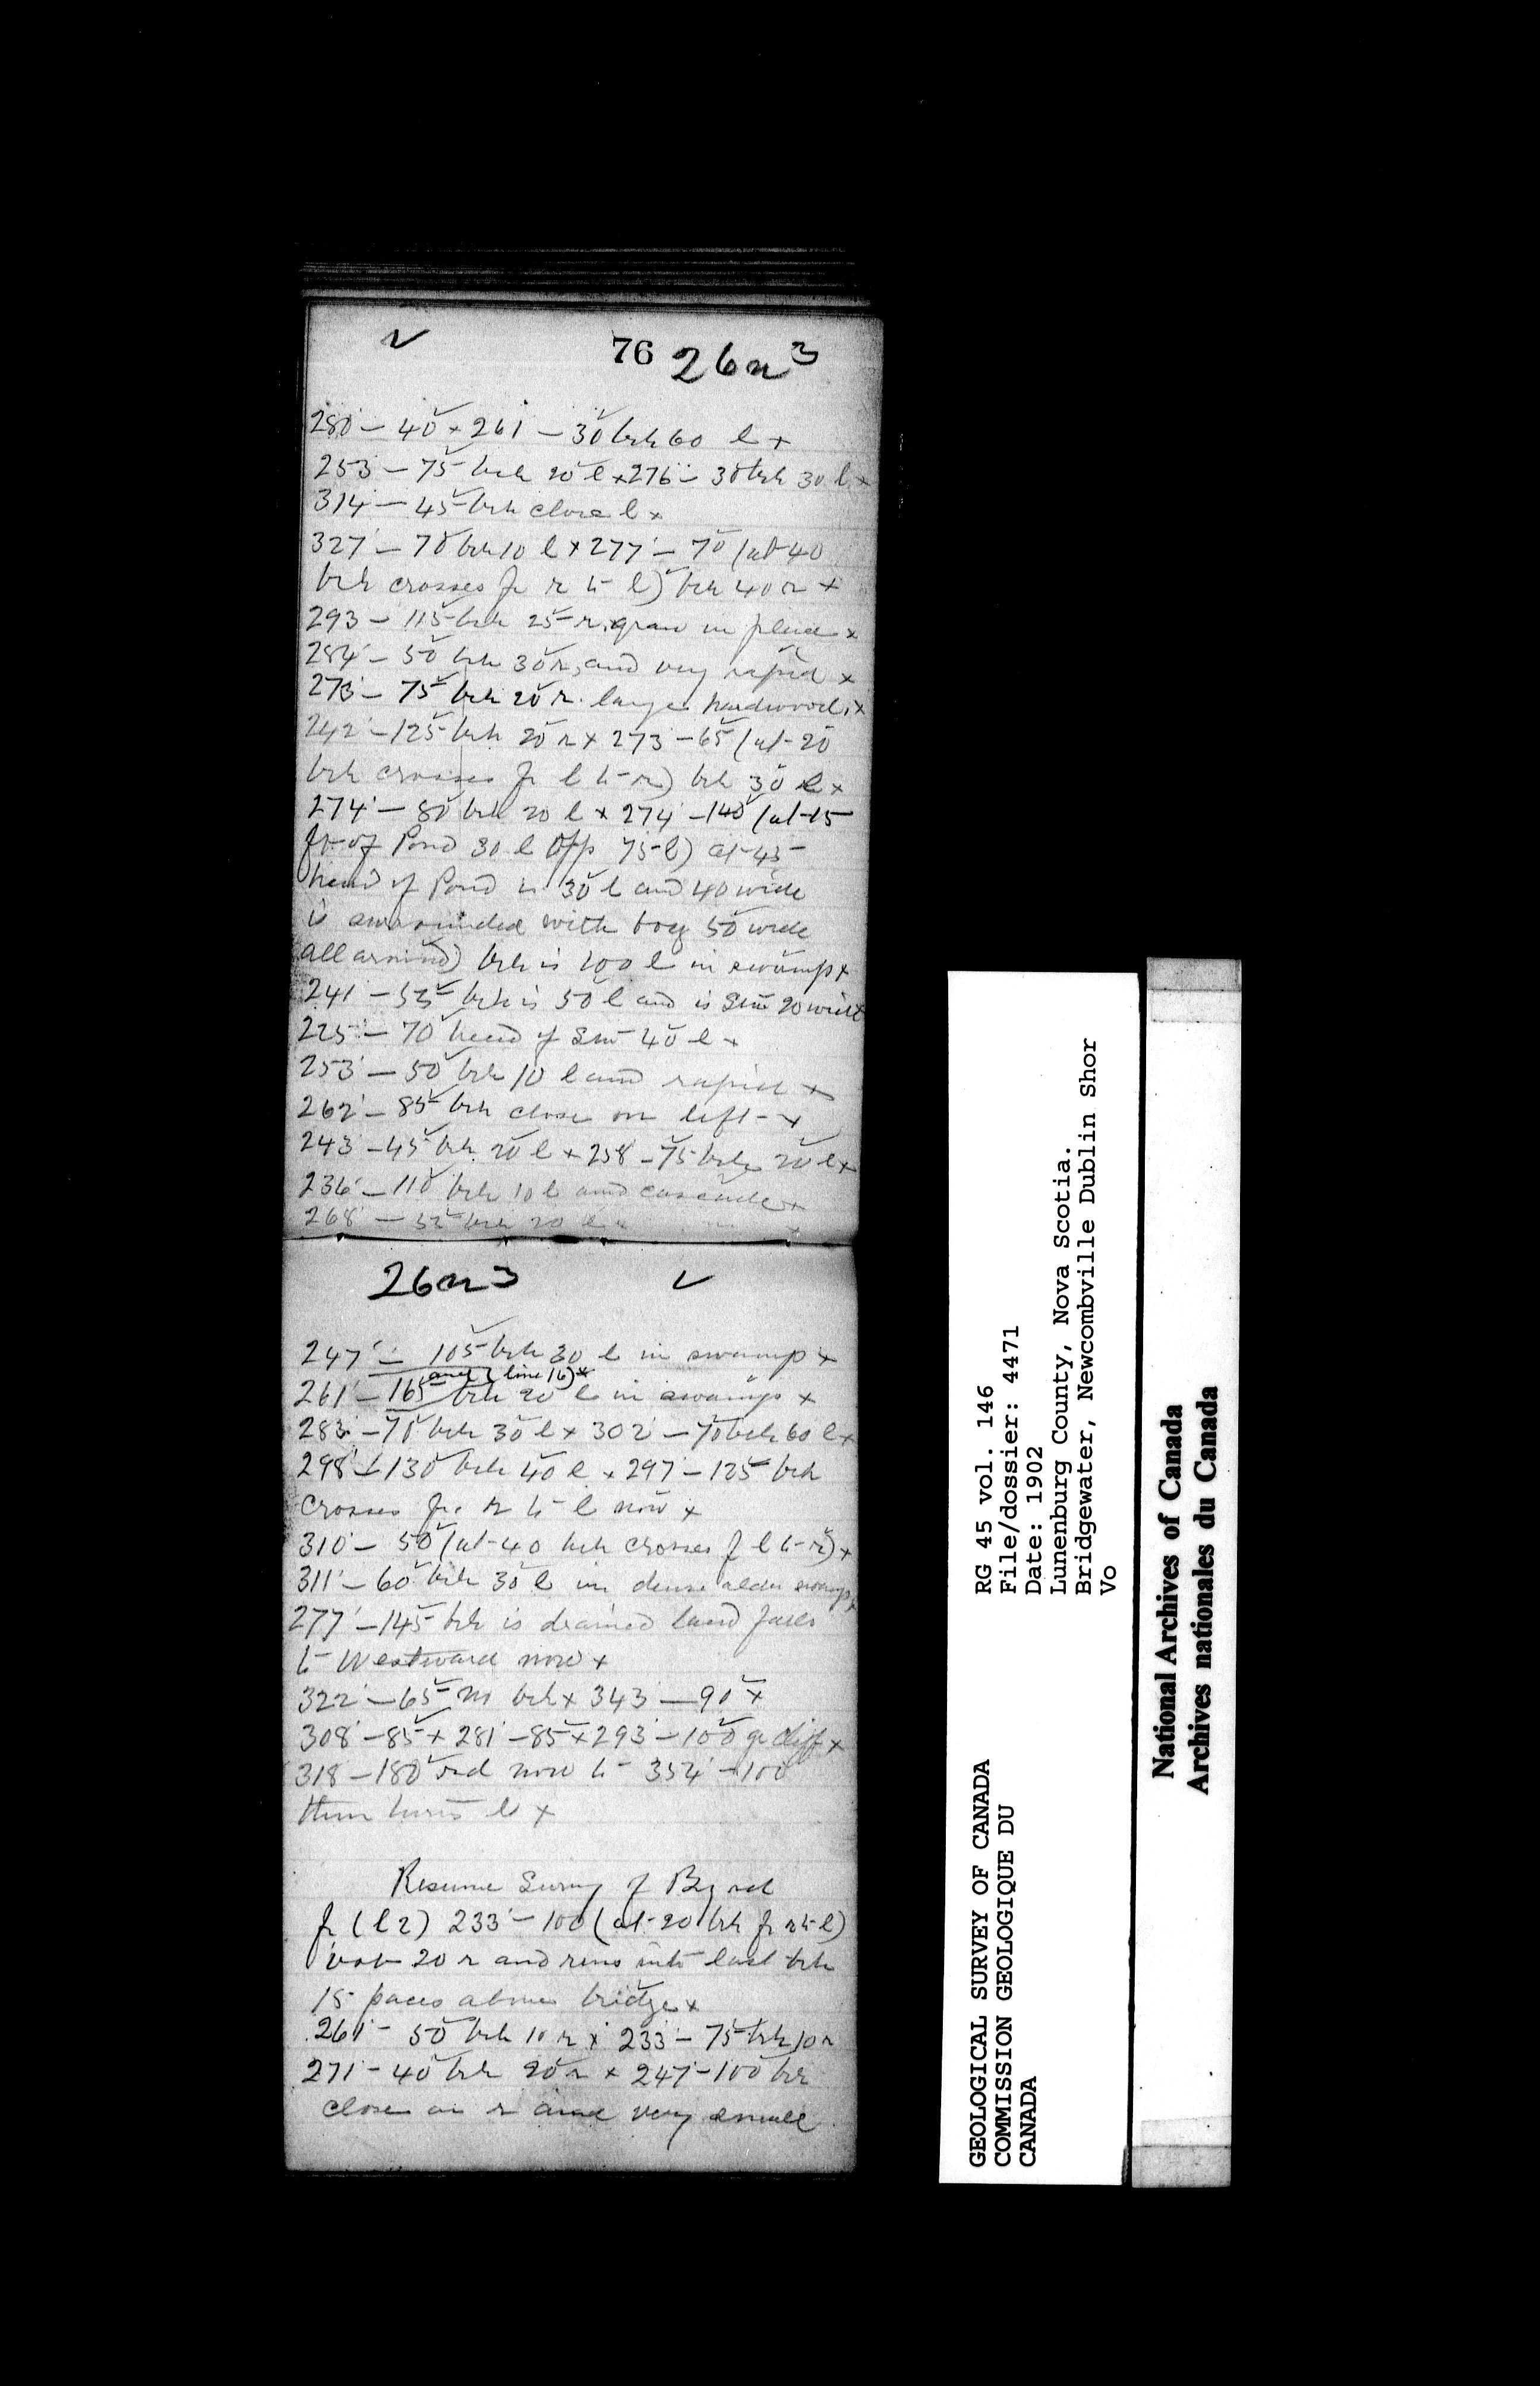 76 26n3
280 - 40 x 261 - 30 brk 60 l x
253 - 75 brk 20 l x 276 - 30 brk 30 l x
314 - 45 brk close l x
327 - 70 brk 10 l x 277 - 70 (at 40
brk crosses fr r to l) brk 40 r x
293 - 115 brk 25 r x
284 - 50 brk 30 r, and very rapid x
273 - 75 brk 20 r. large hardwood. x
242 - 125 brk 20 r x 273 - 65 (at 20
brk crosses fr l to r) brk 30 l x
274 - 80 brk 20 l x 274 - 140 (at 15
ft of Pond 30 l Opp 75 l) at 45
head of Pond is 30 l and 40 wide
is surrounded with bog 50 wide
all around) brk is 100 l in swamp x
241 - 55 brk is 50 l and is Stw 20 wide
225 - 70 head of Stw 40 l x
253 - 50 brk 10 l and rapid x
262 - 85 brk close on left x
243 - 45 brk 20 l x 258 - 75 brk 20 l x
236 - 110 brk 10 l and cascade x
268 - 52 brk 20 l x
26n3
247 - 105 brk 30 l in swamp x
and (line 16) x
261 - 165 brk 20 l in swamp x
283 - 70 brk 30 l x 302 - 70 brk 60 l x
298 - 130 brk 40 l x 297 - 125 brk
crosses fr r to l now x
310 - 50 (at 40 brk crosses f l to r) x
311 - 60 brk 30 l in dense alder swamp x
277 - 145 brk is drained land falls
to Westward now x
322 - 65 no brk x 343 - 90 x
308 - 85 x 281 - 85 x 293 - 100 x
318 - 180 rd now to 354 - 100
then turns l x
Resume Survey of By rd
fr (l 2) 233 - 100 (at 20 brk fr r to l)
20 r and runs into last brk
15 paces above bridge x
261 - 50 brk 10 r x 233 - 75 brk 10 r
271 - 40 brk 20 r x 247 - 100 brk
close on r and very small
GEOLOGICAL SURVEY OF CANADA
COMMISSION GEOLOGIQUE DU
CANADA
RG 45 vol. 146
File/dossier: 4471
Date: 1902
Lunenburg County, Nova Scotia.
Bridgewater, Newcombville Dublin Shor
Vo
National Archives of Canada
Archives nationales du Canada